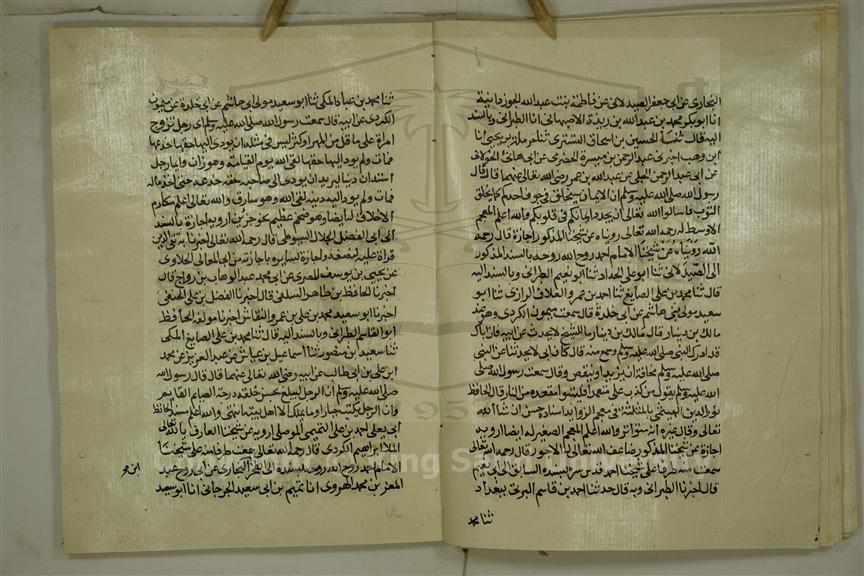 البخاري عن ابي جعفر الصيدلاني عن فاطمة بنت عبدالله الجوزدانية
انا ابوبكر محمد بن عبدالله بن ريذة الاصبهاني انا الطبراني وبالسند
اليه قال ثنا الحسين بن اسحاق التستري ثنا حرملة بن يحيى انا
ابن وهب اخبرني عبدالرحمن بن ميسرة الحضرمي عن ابي هاني الخولاني
عن ابي عبدالرحمن الحبلي عن عبدالله بن عمر رضي الله تعالى عنهما قال قال
رسول الله صلى الله عليه وسلم ان الايمان سيخلق في جوف احدكم كما يخلق
الثوب فاسالوا الله تعالى ان يجدد ايمانكم في قلوبكم والله اعلم المعجم
الاوسط له رحمه الله تعالى رويناه عن شيخنا المذكور اجازة قال رحمه
الله رويناه عن شيخنا الامام احمد روح الله روحه بالسند المذكور
الى الصيدلاني ثنا ابوعلي الحداد ثنا ابونعيم الطبراني وبالسند اليه
قال ثنا محمد بن علي الصايغ ثنا احمد بن عمر والعلاف الرازي ثنا ابو
سعيد مولى بني هاشم عن ابي خلدة قال سمعت ميمون الكردي وهو عند
مالك بن دينار قال مالك بن دينار ما للشيخ لا يحدث عن ابيه فان اباك
قد ادرك النبي صلى الله عليه وسلم وسمع منه قال كان ابي لا يحدثنا عن النبي
صلى الله عليه وسلم مخافة ان يزيد او ينقص وقال سمعت رسول الله صلى
الله عليه وسلم يقول من كذب علي متعمدا فليتبوا مقعده من النار قال الحافظ
نور الدين الهيثمي بالمثلثة في مجمع الزوايد اسناده حسن ان شا الله
تعالى وقال غيره انه متواتر والله اعلم المعجم الصغير له ايضا ارويه
اجازة عن شيخنا المذكور ضاعف الله تعالى لي الاجور قال رحمه الله تعالى
سمعت منه طرفا على شيخنا احمد قدس سره بسنده السابق الى ابي نعيم
قال اخبرنا الطبراني وبه قال حدثنا احمد بن قاسم البرتي ببغداد
ثنا محمد
ثنا محمد بن عباد المكي ثنا ابوسعيد مولى ابي هاشم عن ابي خلدة عن ميمون
الكردي عن ابيه قال سمعت رسول الله صلى الله عليه وسلم اي رجل تزوج
امراة على ما قل من المهر او كثر ليس في نفسه ان يودي اليها حقها خدعها
فمات ولم يود اليها حقها لقي الله يوم القيامة وهو زان وايما رجل
استدان دينا لا يريد ان يودي الى صاحبه حقه خدعه حتى اخذ ماله
فمات ولم يود اليه دينه لقي الله وهو سارق والله تعالى اعلم مكارم
الاخلاق له ايضا وهو ضخم عظيم نحو جزئين ارويه اجازة بالسند
الى ابي الفضل الجلال السيوطي قال رحمه الله تعالى اخبرنا به تقي الدين
قراة عليه لنصفه واجازة لسايره باجازته من ابي المعالي الحلاوي
عن يحيى بن يوسف المصري عن ابي محمد عبدالوهاب بن رواج قال
اخبرنا الحافظ بن طاهر السلفي قال اخبرنا الفضل بن علي الحنفي
اخبرنا ابوسعيد محمد بن علي بن عمرو النقاش اخبرنا مولفه الحافظ
ابوالقاسم الطبراني وبالسند اليه قال ثنا محمد بن علي الصايغ المكي
ثنا سعيد بن منصور ثنا اسماعيل بن عياش عن عبدالعزيز عن محمد
ابن علي بن ابي طالب عن ابيه رضي الله تعالى عنهما قال قال رسول الله
صلى الله عليه وسلم ان الرجل ليبلغ بحسن خلقه درجة الصايم القايم
وان الرجل يكتب جبارا وما يملك الا اهل بيته انتهى والله اعلم مسند الحافظ
ابي يعلى احمد بن علي التميمي الموصلي ارويه عن شيخنا العارف بالله تعالى
الملا ابراهيم الكردي قال رحمه الله تعالى سمعت طرفا منه على شيخنا
الامام احمد روح الله روحه بسنده الى الفخر البخاري عن ابي روح عبد
المعز بن محمد الهروي انا تميم بن ابي سعيد الجرجاني انا ابوسعيد